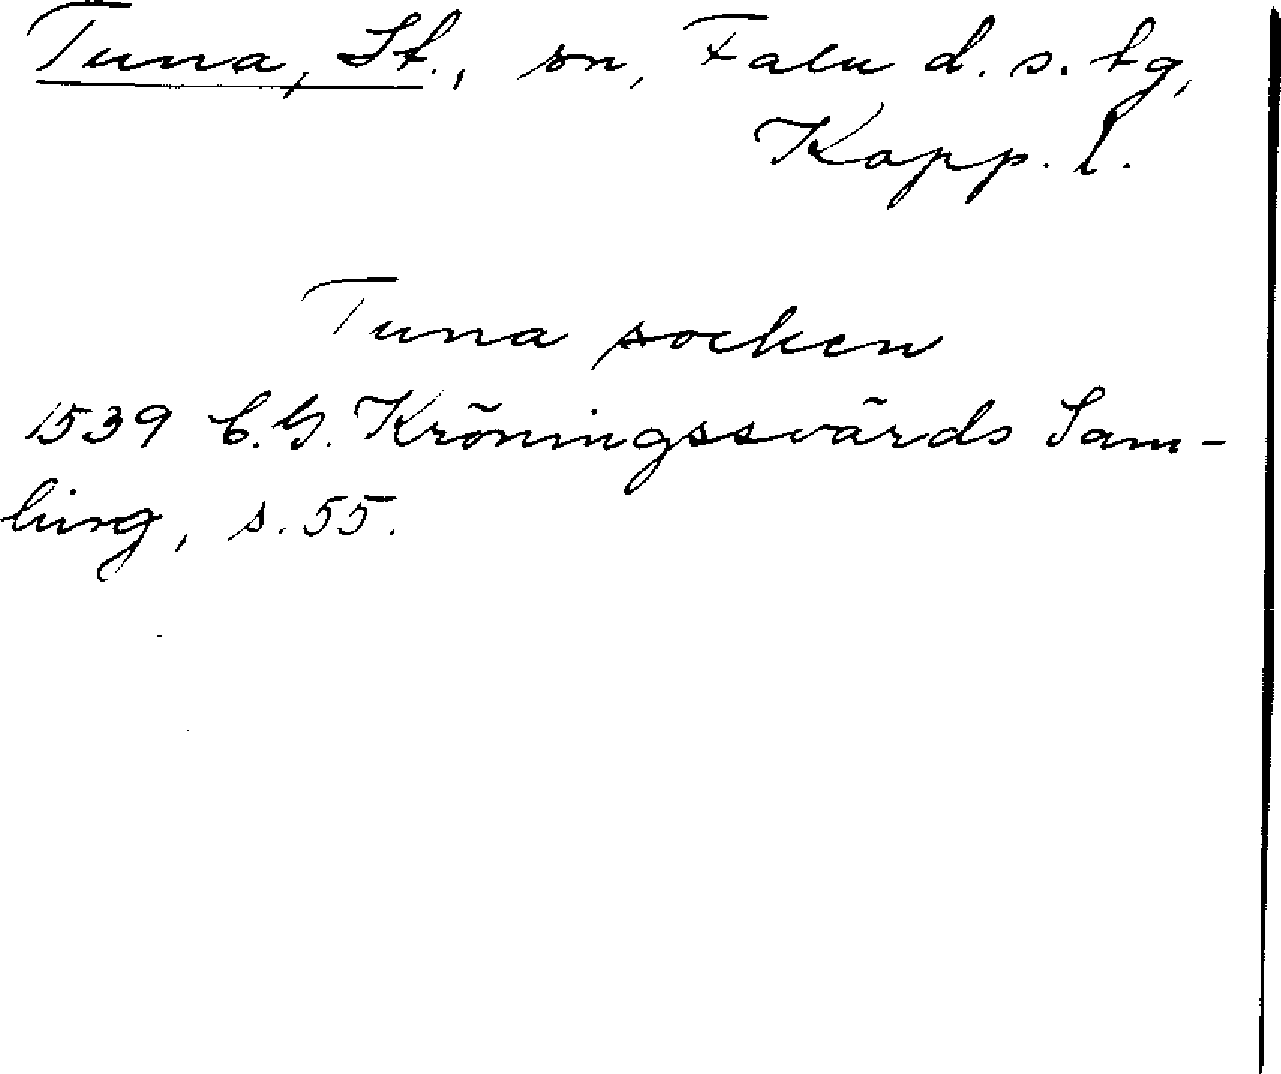 Tuna, St., sn, Falu d. s. tg,
Kopp. l.
Tuna socken
1539 C.G. Kröningssvärds Sam-
ling, s. 55.